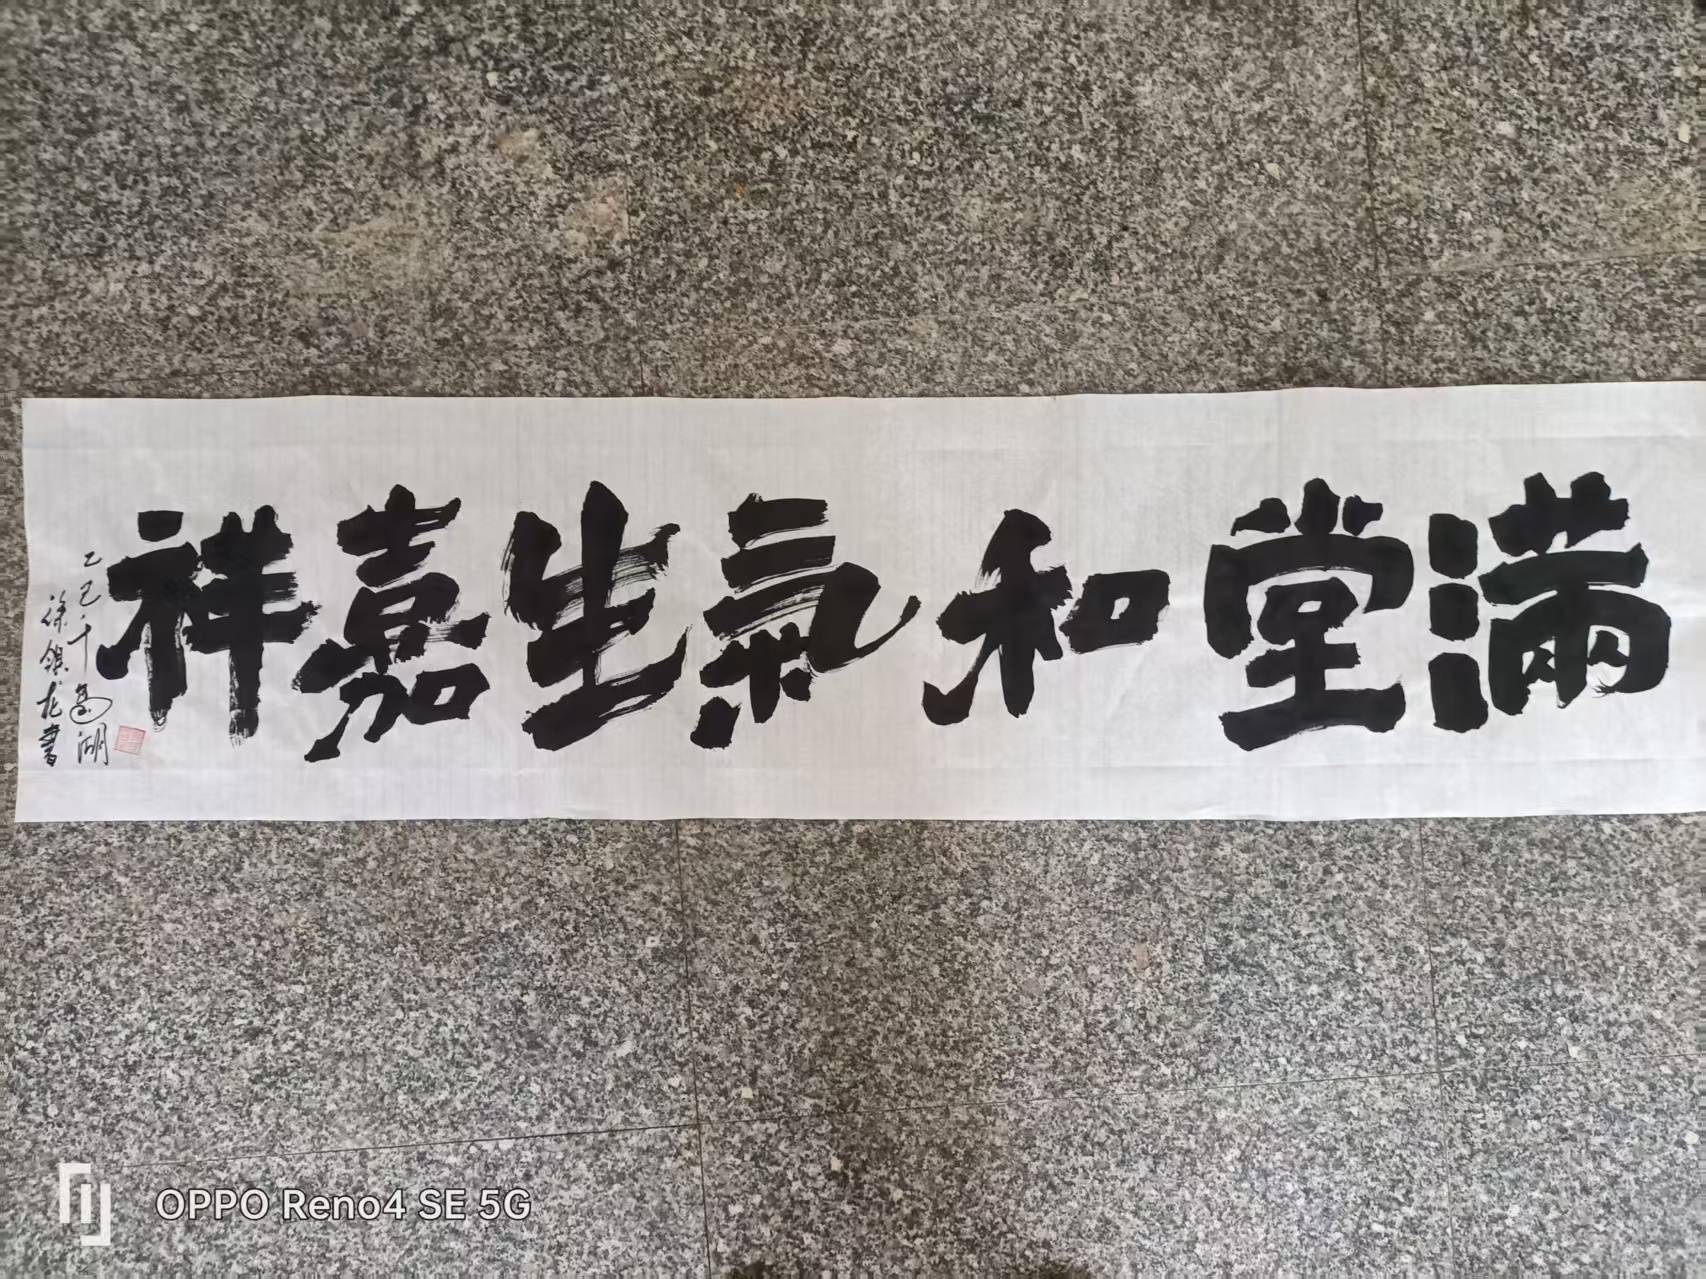 满堂和氣生嘉祥
乙巳年
徐銀龙書
OPPO Reno4 SE 5G